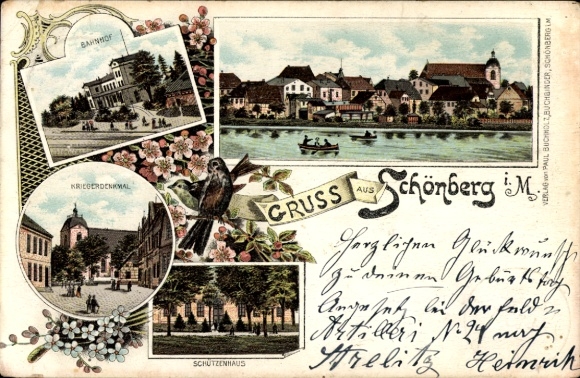 BAHNHOF
KRIEGERDENKMAL
GRUSS AUS Schönberg i. M.
VERLAG VON PAUL BUCHHOLZ, BUCHBINDER, SCHÖNBERG I.M.
SCHÜTZENHAUS
Herzlichen Glückwunsch
zu deinem Geburtstag
Angesetz bei der Feld-
Artilleri N 24 nach
Strelitz Heinrich